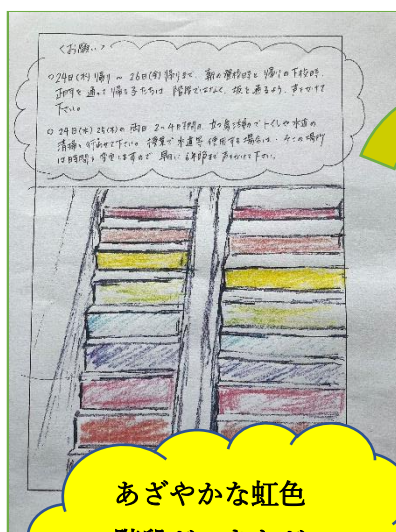 <お願い>
○24日(水)帰り〜26日(金)帰りまで、朝の登校時と帰りの下校時、
正門を通って帰る子たちは、階段ではなく、坂を通るよう、声をかけて
下さい。
○24日(水)25(木)の両日 2〜4時間目、
清掃を行わせて下さい。授業で水道等使用する場合は、そこの場所
は時間を変更しますので、早めに6年部まで声をかけて下さい。
あざやかな虹色